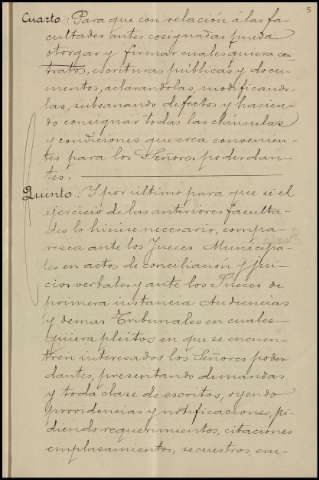 5
Cuarto: Para que con relación á las fa-
cultades antes cosignadas pueda
otorgar y firmar cualesquiera con
tratos, escrituras públicas y docu-
mentos, aclarandolas, modificando-
las, subsanando defectos y hacien-
do consignar todas las cláusulas
y condiciones que crea convenien-
tes para los Señores poderdan-
tes.
Quinto: Y por ultimo para que si el
ejercicio de las anteriores faculta-
des lo hiciese necesario, compa-
rezca ante los Jueces Municipa-
les en actos de conciliación y jui-
cios verbales y ante los Jueces de
primera instancia Audiencias
y demas Tribunales en cuales-
quiera pleitos en que se encuen-
tren interesados los Señores poder
dantes, presentando demandas
y toda clase de escritos, oyendo
providencias y notificaciones, pi-
diendo requerimientos, citaciones
emplasamientos, secuestros, em-